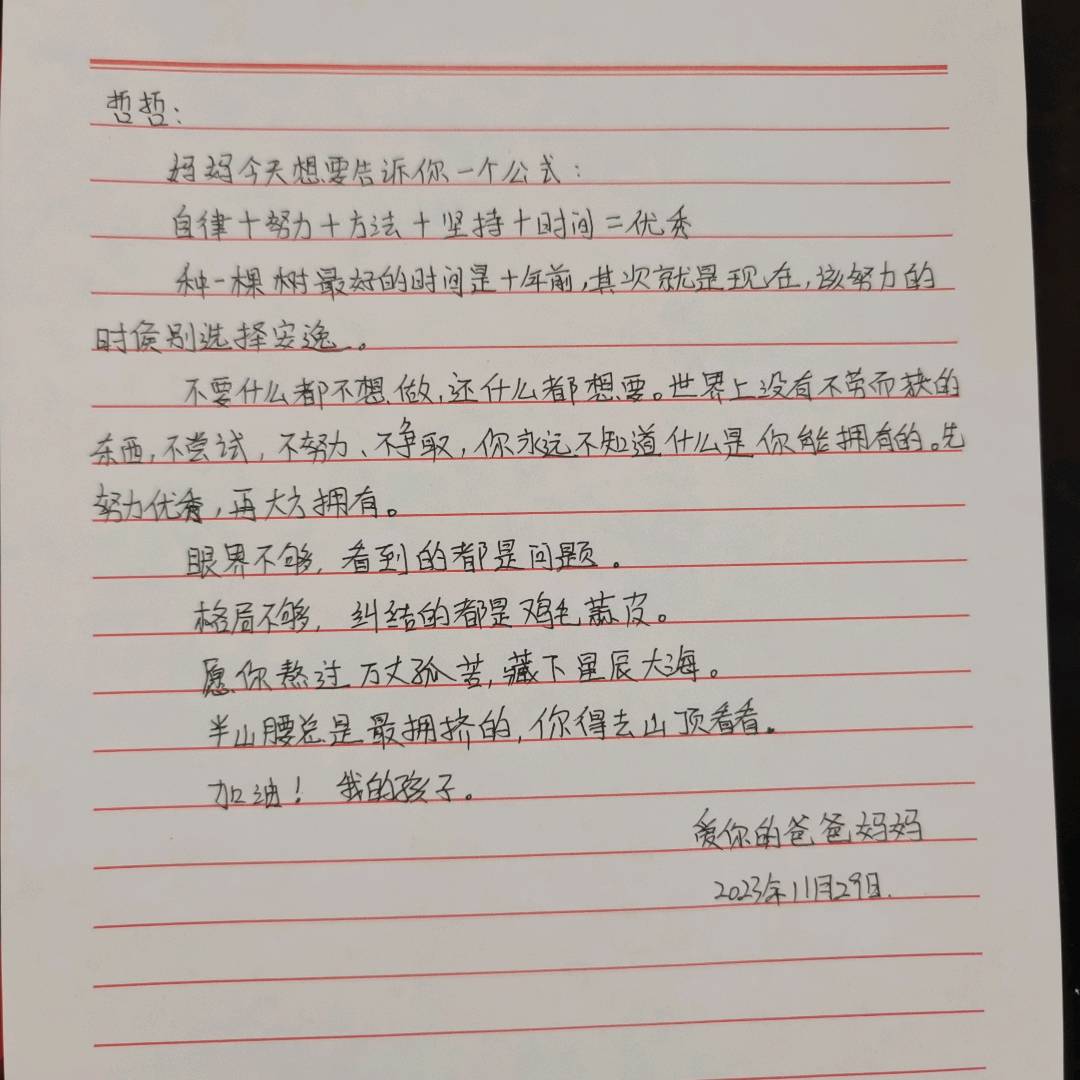 哲哲：
妈妈今天想要告诉你一个公式：
自律+努力+方法+坚持+时间=优秀
种一棵树最好的时间是十年前，其次就是现在，该努力的
时候别选择安逸。
不要什么都不想做，还什么都想要。世界上没有不劳而获的
东西，不尝试，不努力、不争取，你永远不知道什么是你能拥有的。先
努力优秀，再大方拥有。
眼界不够，看到的都是问题。
格局不够，纠结的都是鸡毛蒜皮。
愿你熬过万丈孤苦，藏下星辰大海。
半山腰总是最拥挤的，你得去山顶看看。
加油！我的孩子。
爱你的爸爸妈妈
2023年11月29日.